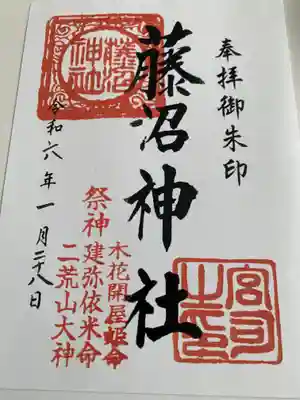 奉拝御朱印
藤沼神社
藤沼神社
令和六年一月二十八日
木花開屋姫命
祭神 建弥依米命
二荒山大神
宮司之印